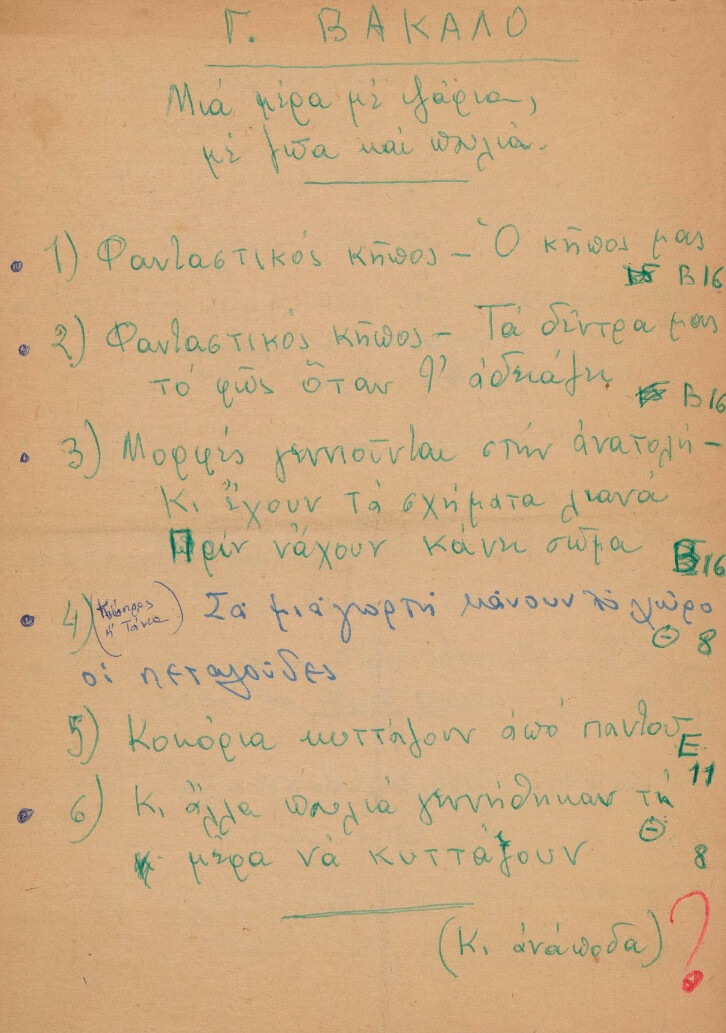 Γ. ΒΑΚΑΛΟ
Μιά μέρα μέ ψάρια,
μέ ζῶα καί πουλιά.
1) Φανταστικός κῆπος – Ὁ κῆπος μας
Β16
2) Φανταστικός κῆπος – Τά δέντρα μας
τό φῶς ὅταν ἀδειάζει Β16
3) Μορφές γεννιοῦνται στήν ἀνατολή –
Κι ἔχουν τά σχήματα λιανά
Πρίν νἄχουν κάνει σῶμα Β16
4) ( ἤ Τάνια) Σά μιά γιορτή κάνουν τό χῶρο
Θ 8
οἱ πεταλοῦδες
5) Κοκόρια κυττάζουν ἀπό παντοῦ
Ε
11
6) Κι ἄλλα πουλιά γεννήθηκαν τή
Θ
μέρα νά κυττάζουν 8
(Κι ἀνάποδα) ?